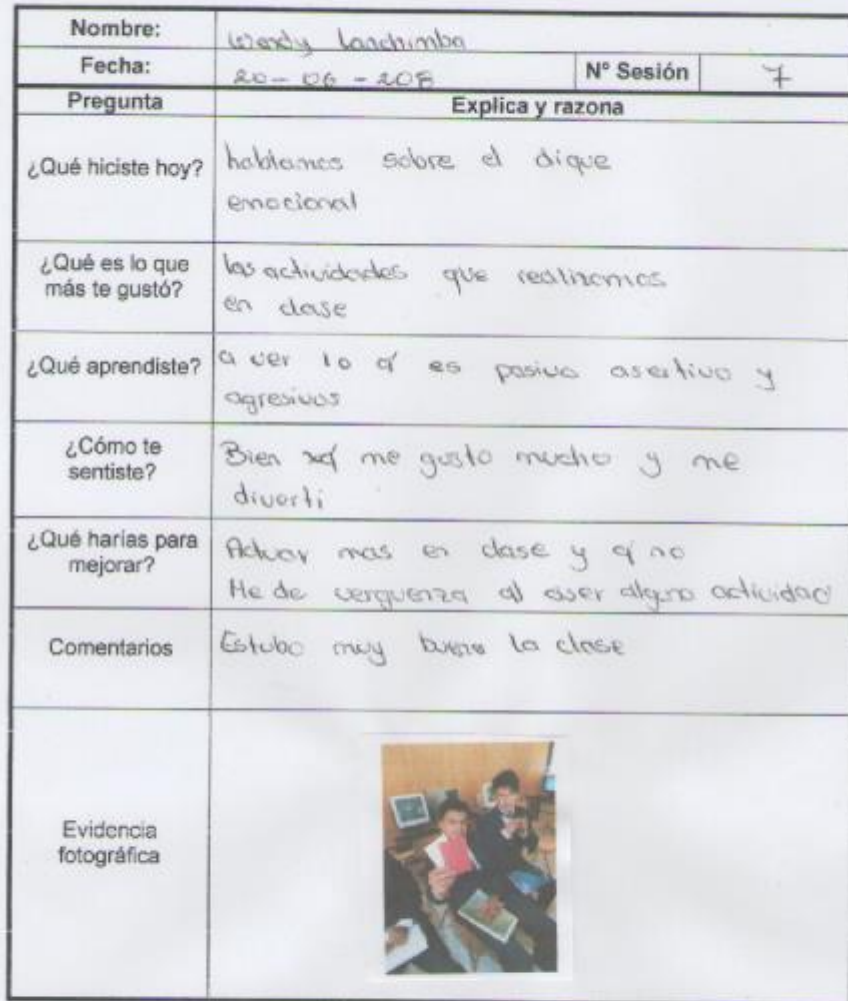 Nombre: Wendy Lanchimba
Fecha: 20-06-208 N° Sesión 7
Pregunta Explica y razona
¿Qué hiciste hoy? hablamos sobre el dique
emocional
¿Qué es lo que
más te gustó?
las actividades que realizamos
en clase
¿Qué aprendiste? a ver lo q' es pasivo asertivo y
agresivos
¿Cómo te
sentiste?
Bien xq' me gusto mucho y me
diverti
¿Qué harías para
mejorar?
Actuar mas en clase y q' no
Me de verguenza al aser alguna actividad
Comentarios Estubo muy buena la clase
Evidencia
fotográfica